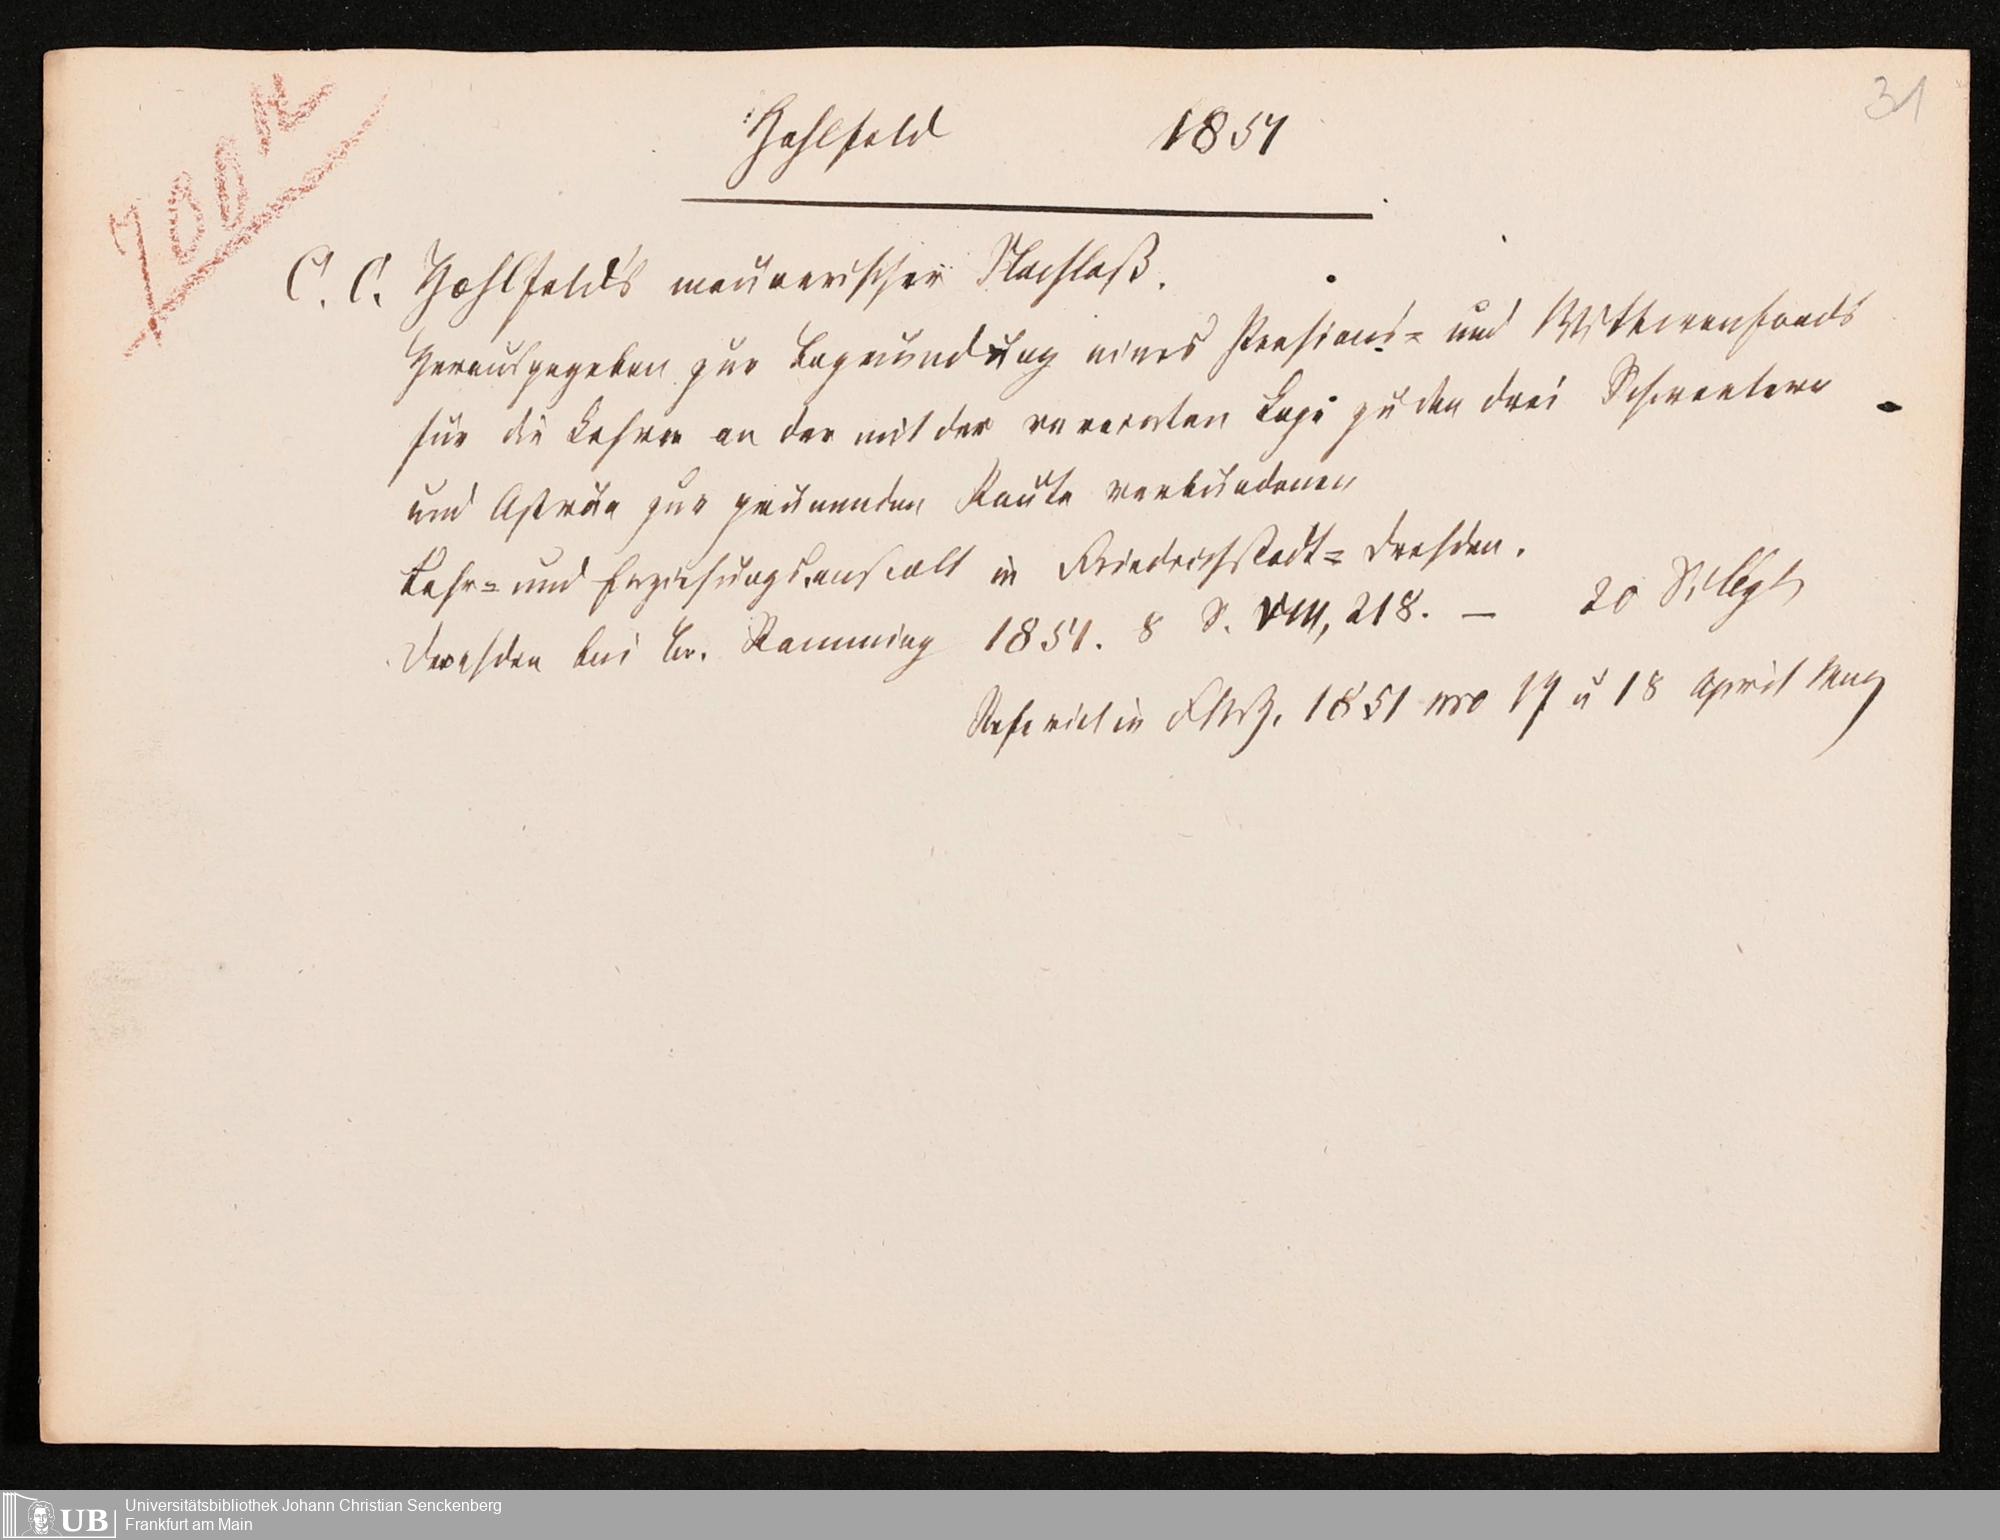 31
Hohlfeld 1851
C. C. Hohlfeld's maurerischer Nachlaß.
Herausgegeben zur Begründung eines Pensions= und Wittwenfonds
für die Lehrer an der mit der vereinten Loge zu den drei Schwertern
und Asträa zur grünenden Raute verbundenen
Lehr= und Erziehungsanstalt in Friedrichstadt=Dresden.
Dresden bei Br. Ramming 1851. 8 S. VIII, 218. — 20 Silbgl
Referirt in FMrZ. 1851 nro 17 u 18 April May
UB Universitätsbibliothek Johann Christian Senckenberg
Frankfurt am Main